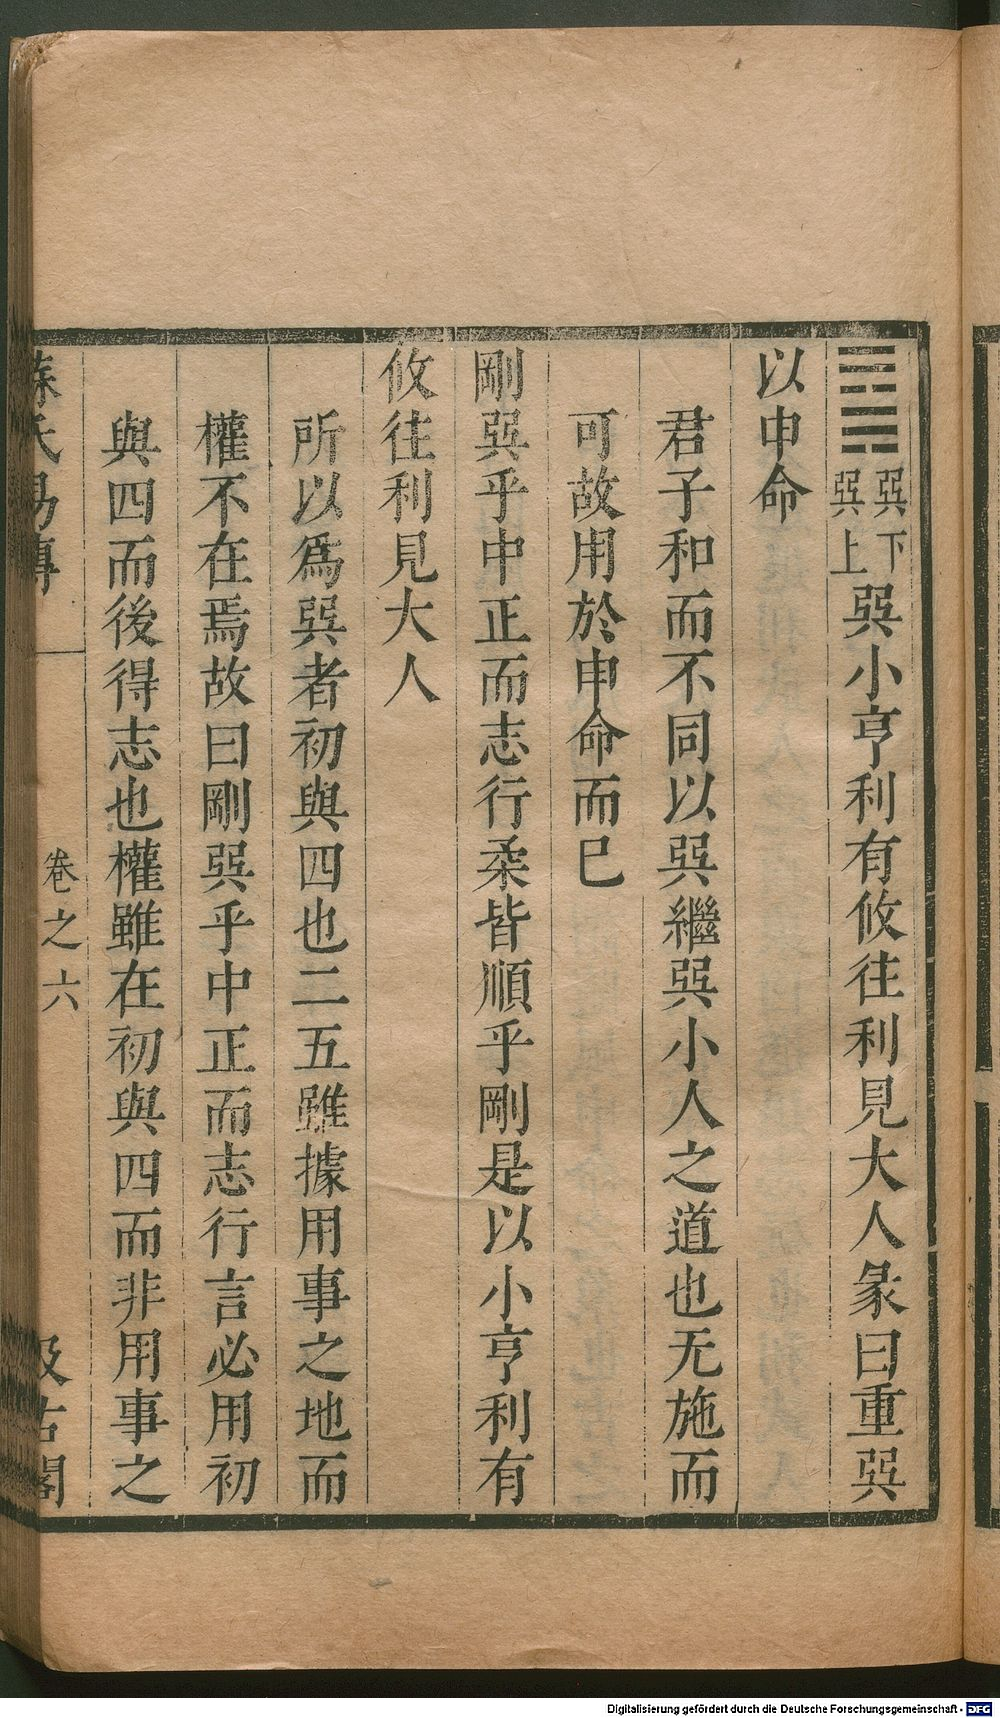 ䷸巽下巽上巽小亨利有攸往利見大人彖曰重巽
以申命
君子和而不同以巽繼巽小人之道也无施而
可故用於申命而已
剛巽乎中正而志行柔皆順乎剛是以小亨利有
攸往利見大人
所以爲巽者初與四也二五雖據用事之地而
權不在焉故曰剛巽乎中正而志行言必用初
與四而後得志也權雖在初與四而非用事之
蘇氏易傳 卷之六 汲古閣
Digitalisierung gefördert durch die Deutsche Forschungsgemeinschaft - DFG